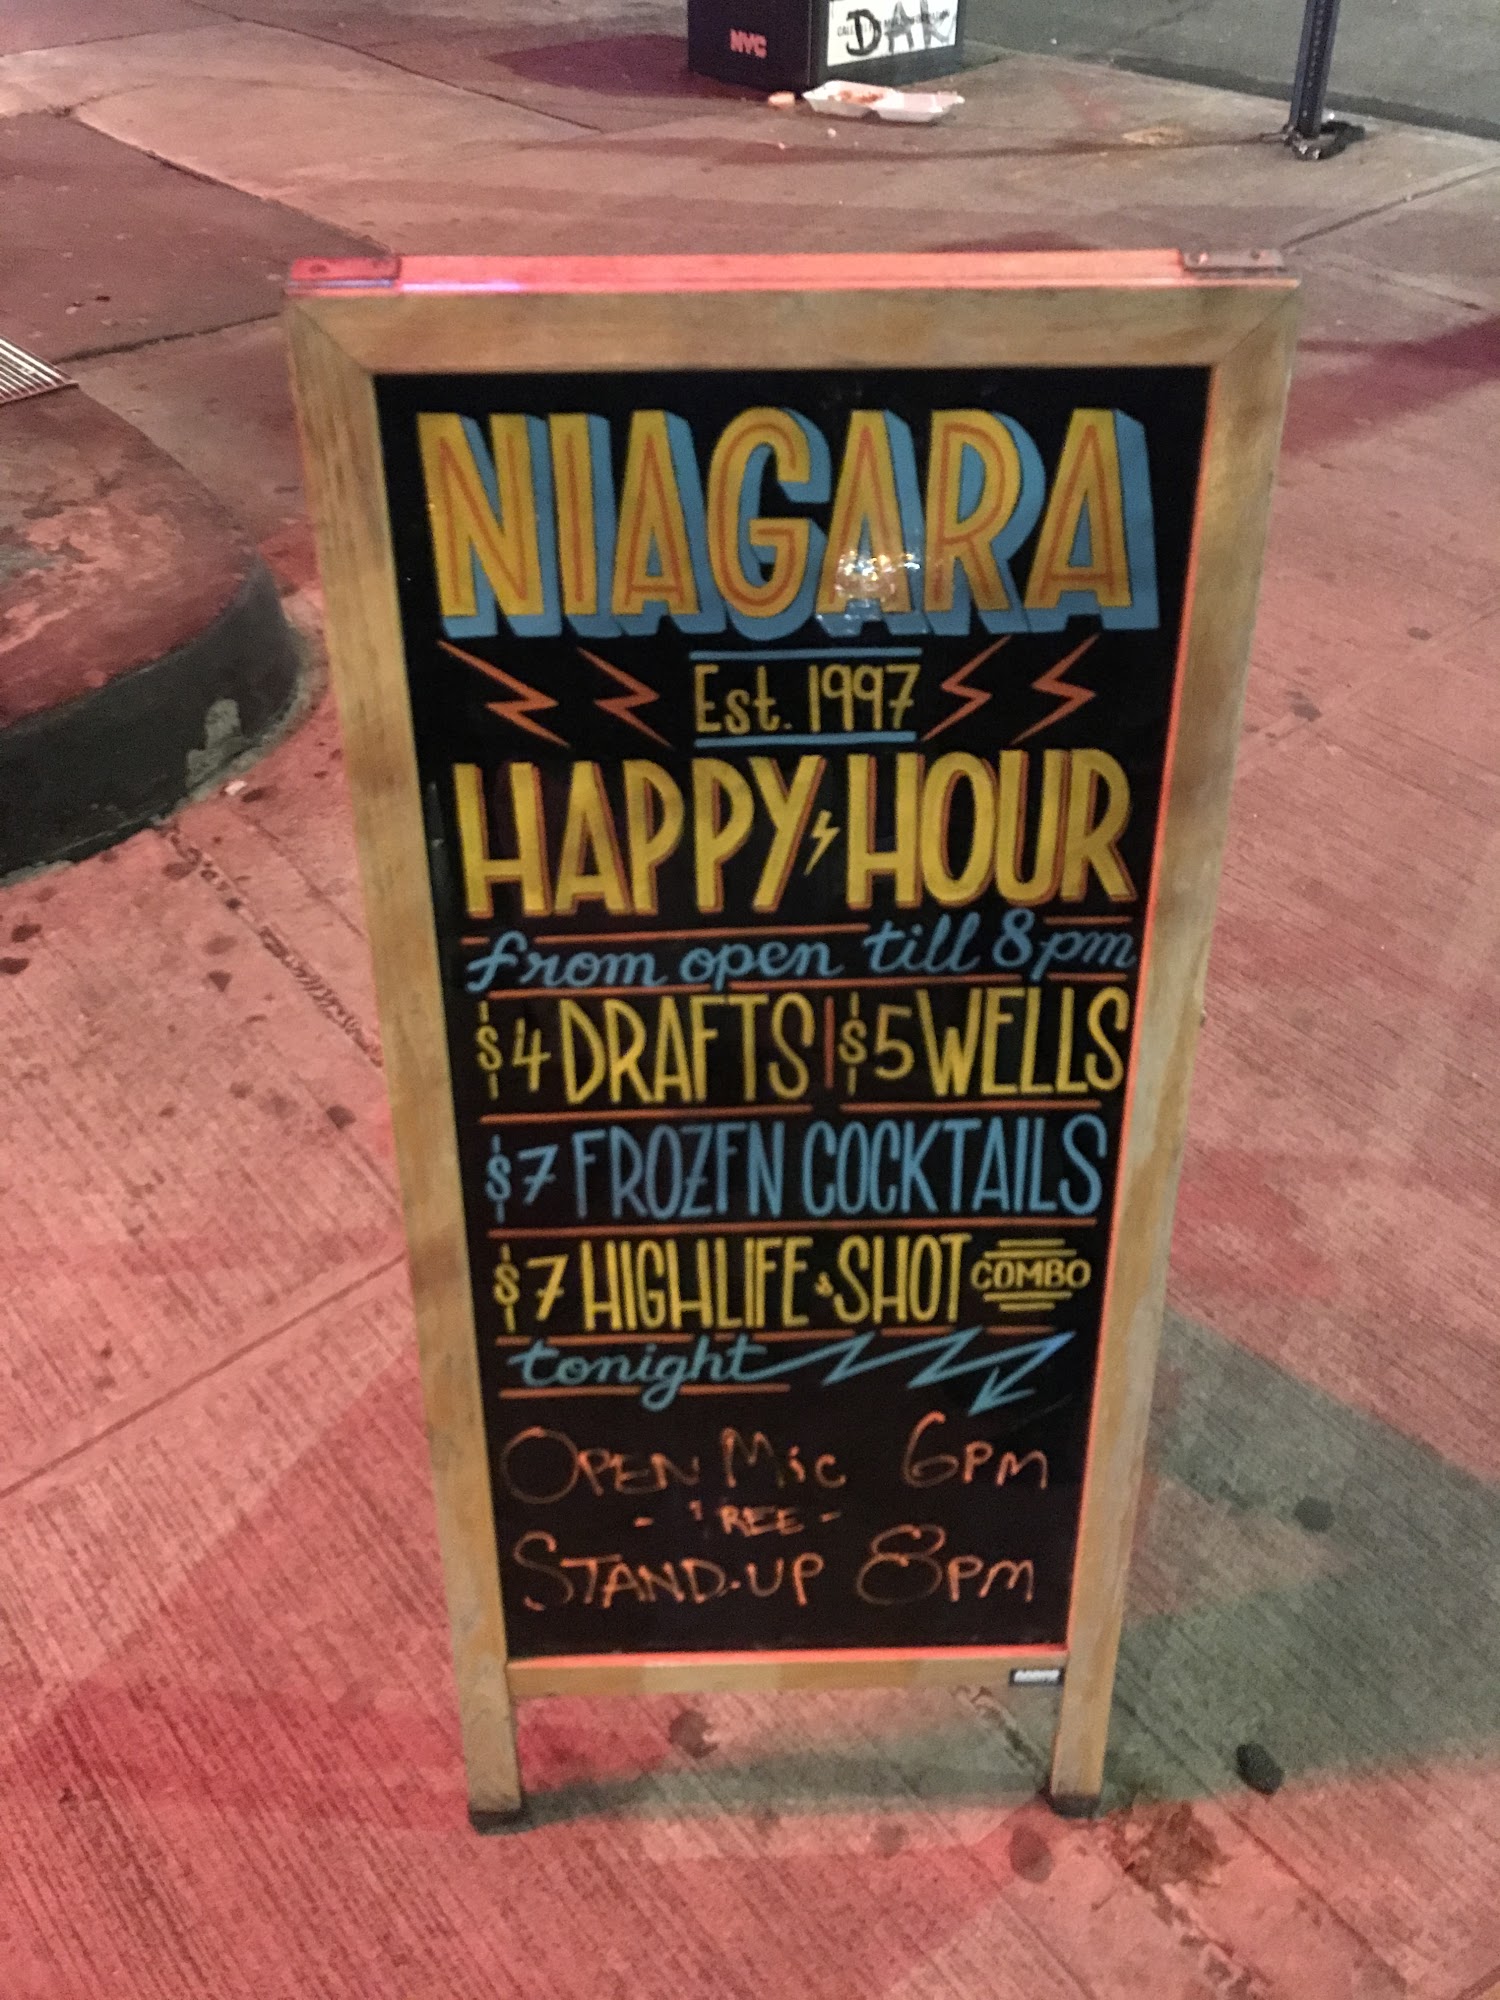 NYC
CALL DAK
NIAGARA
Est. 1997
HAPPY HOUR
from open till 8pm
$4 DRAFTS | $5 WELLS
$7 FROZEN COCKTAILS
$7 HIGHLIFE & SHOT COMBO
tonight
OPEN MiC 6PM
- FREE -
STAND-UP 8PM